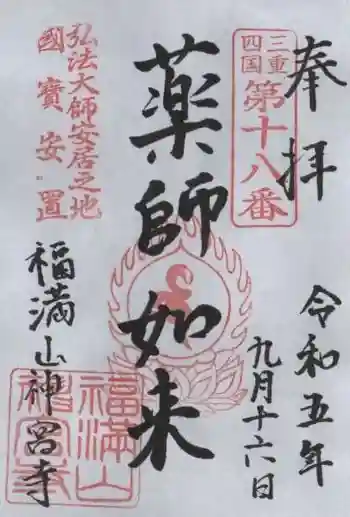 奉拝
令和五年
九月十六日
三重
四国
第十八番
薬師如来
弘法大師安居之地
國寶安置
福満山神宮寺
福満山
神宮寺